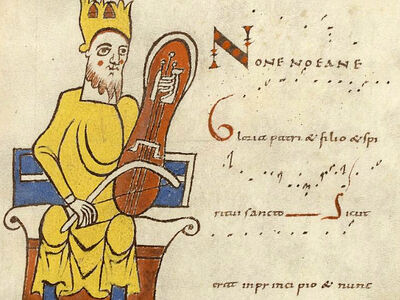 NONENOEANE
Gloria patri & filio & spi
ritui sancto Sicut
erat inprincipio & nunc